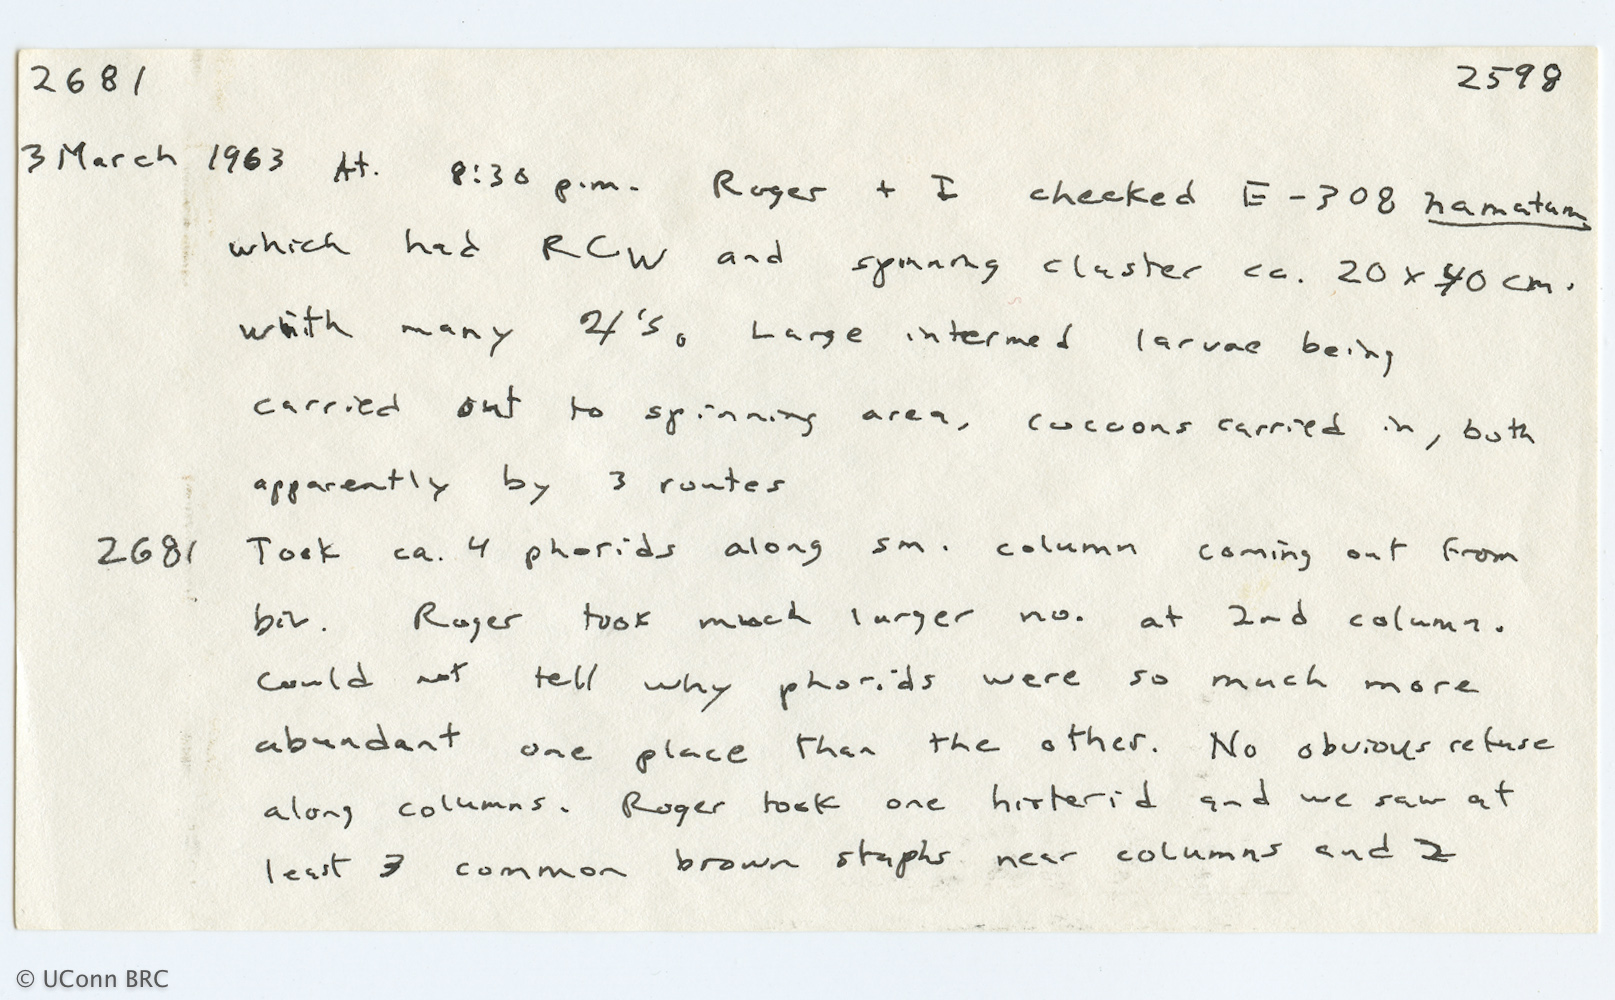 2681 2598
3 March 1963 At. 8:30 p.m. Roger + I checked E-308 hamatum
which had RCW and spinning cluster ca. 20 x 40 cm.
with many 's. Large intermed larvae being
carried out to spinning area, cocoons carried in, both
apparently by 3 routes
2681 Took ca. 4 phorids along sm. column coming out from
biv. Roger took much larger no. at 2nd column.
Could not tell why phorids were so much more
abundant one place than the other. No obvious refuse
along columns. Roger took one histerid and we saw at
least 3 common brown staphs near columns and 2
© UConn BRC